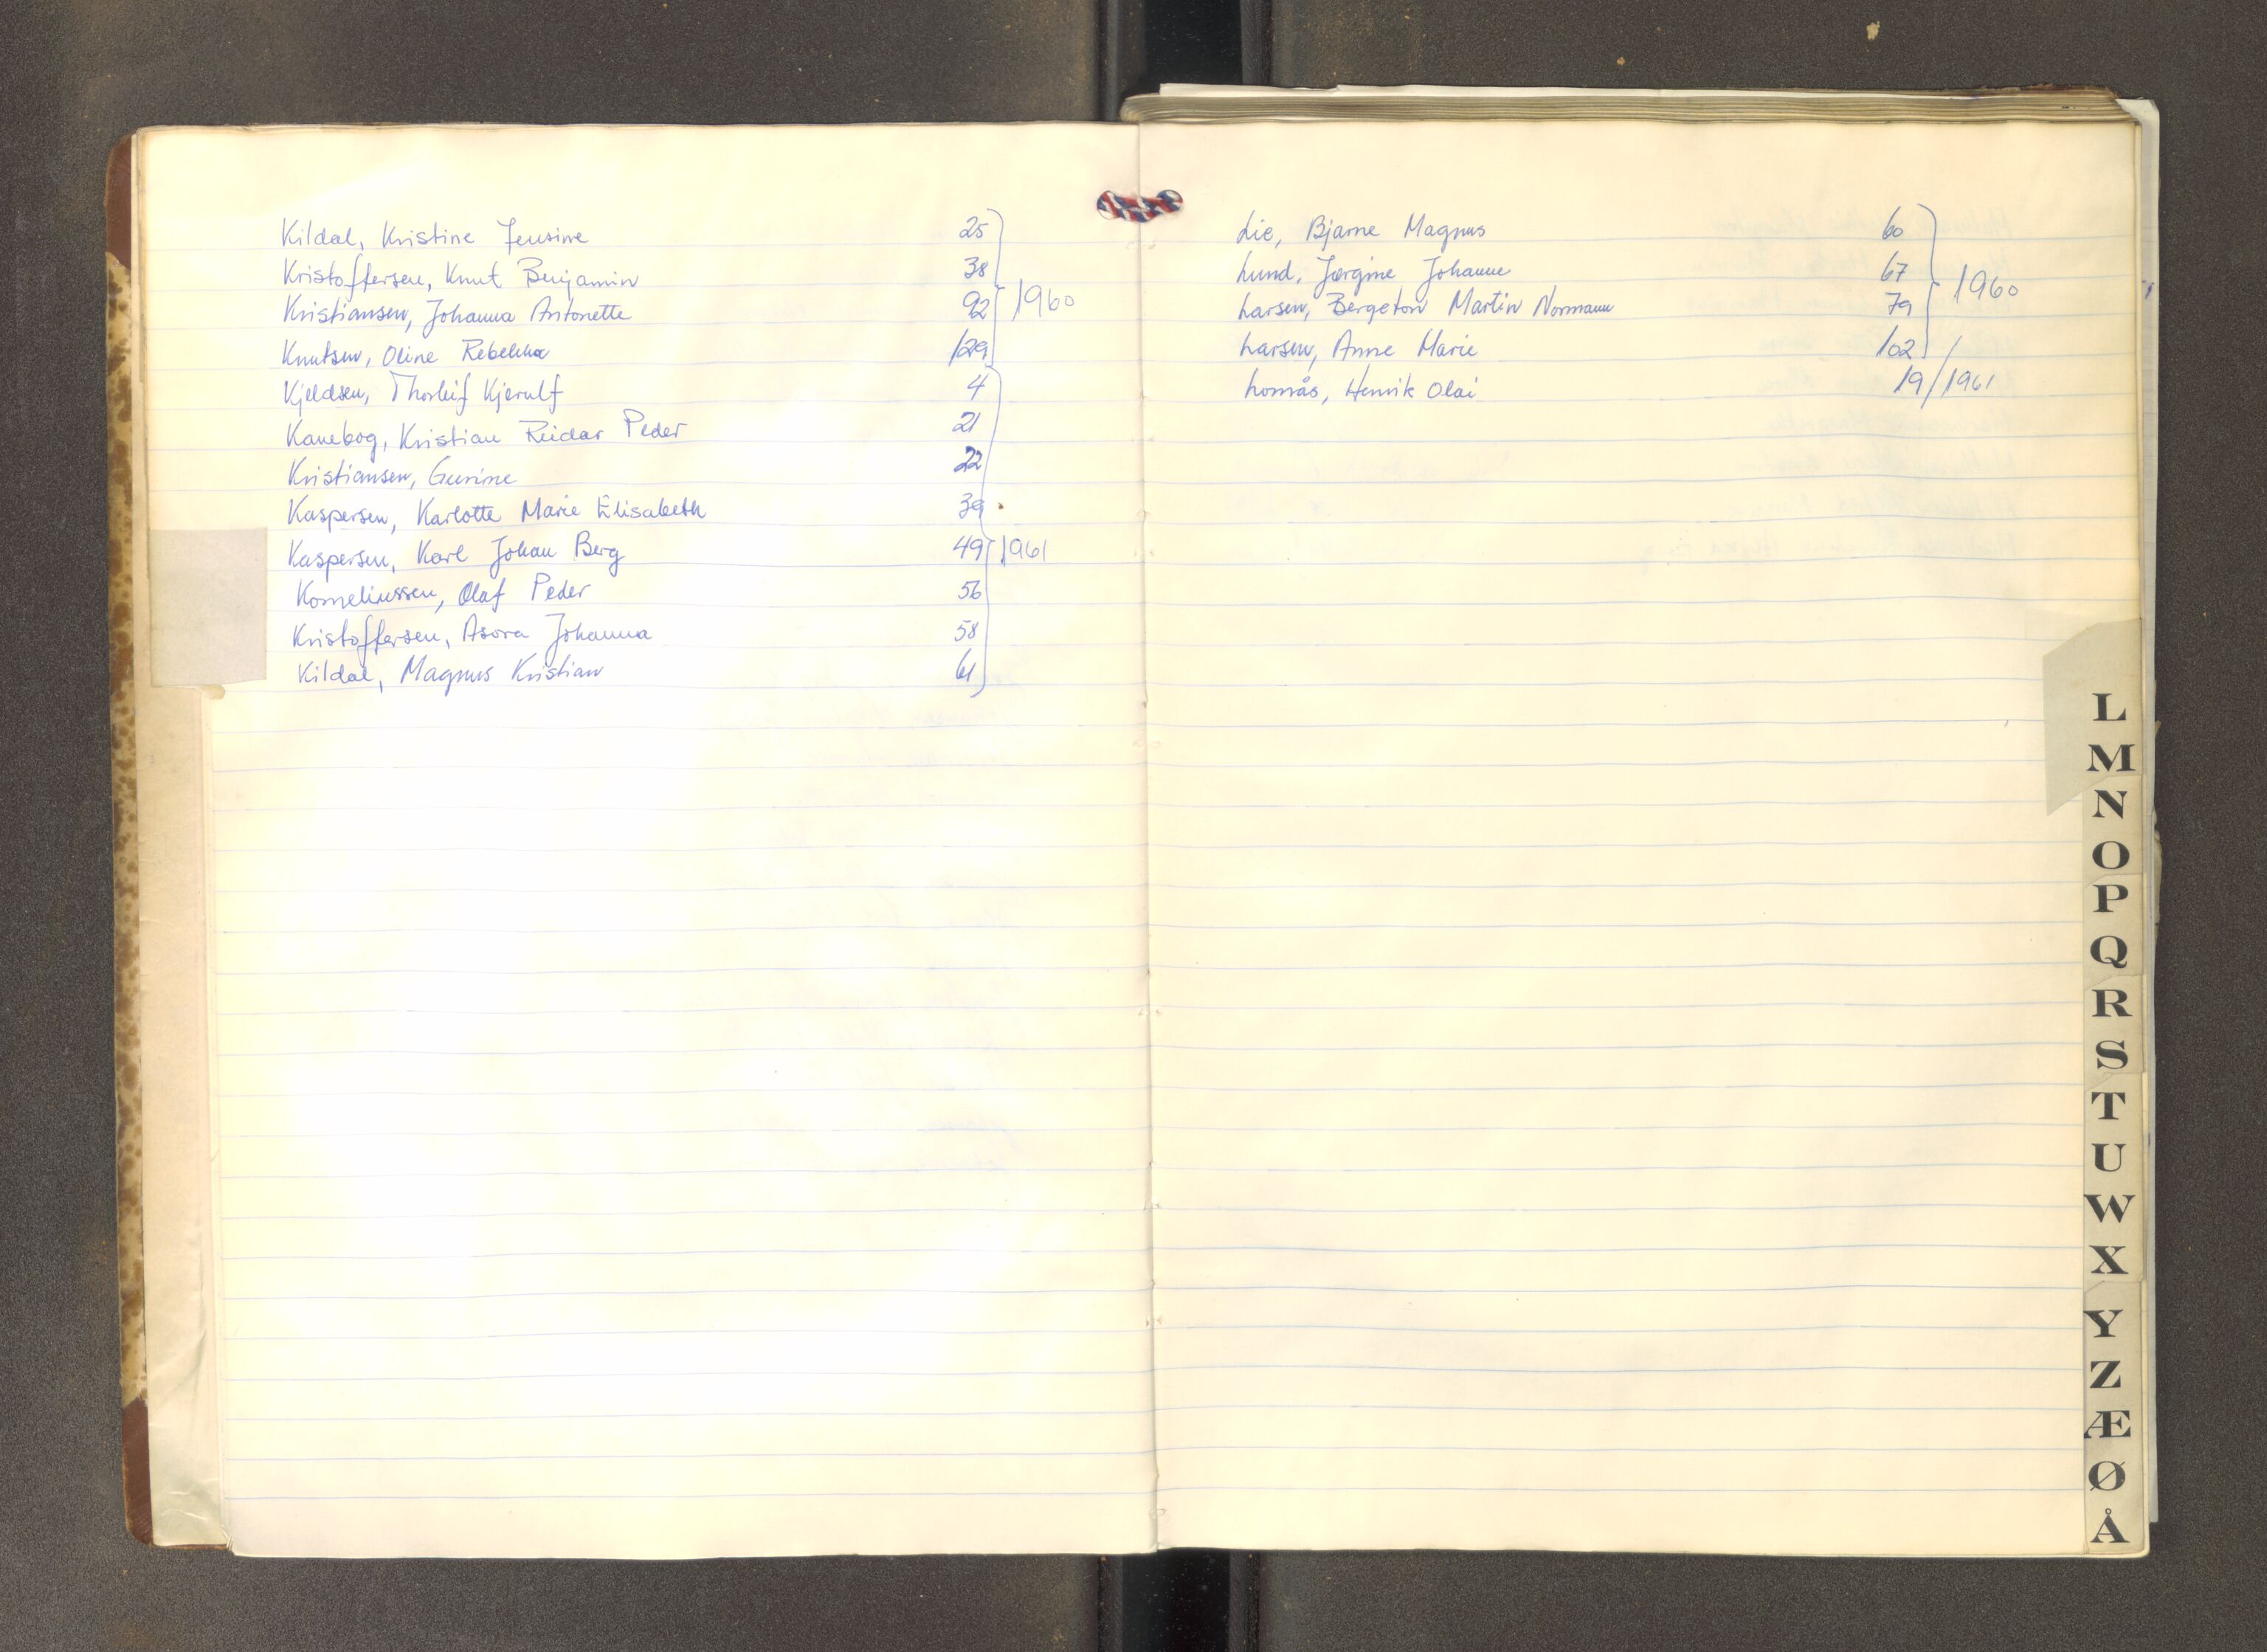 Kildal, Kristine Jensine 25
Kristoffersen, Knut Benjamin 38
Kristiansen, Johanna Antonette 92 1960
Knutsen, Oline Rebekka 129
Kjeldsen, Thorleif Kjerulf 4
Kanebog, Kristian Reidar Peder 21
Kristiansen, Gurine 22
Kaspersen, Karlotte Marie Elisabeth 39
Kaspersen, Karl Johan Berg 49 1961
Korneliussen, Olaf Peder 56
Kristoffersen, Asora Johanna 58
Kildal, Magnus Kristian 61
Lie, Bjarne Magnus 60
Lund, Jørgine Johanne 67
Larsen, Bergeton Martin Normann 79 1960
Larsen, Anne Marie 102
Lomås, Henrik Olai 19/1961
L
M
N
O
P
Q
R
S
T
U
W
X
Y
Z
Æ
Ø
Å